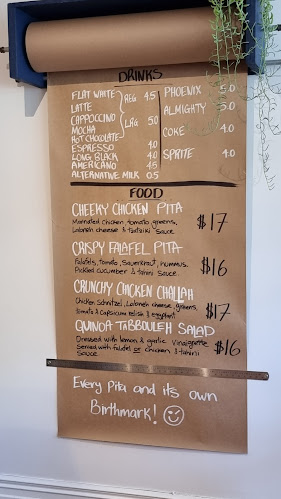 DRINKS
FLAT WHITE REG 4.5
LATTE
CAPPOCCINO LRG 5.0
MOCHA
HOT CHOCOLATE
ESPRESSO 4.0
LONG BLACK 4.0
AMERICANO 4.5
ALTERNATIVE MILK 0.5
PHOENIX 5.0
ALMIGHTY 5.0
COKE 4.0
SPRITE 4.0
FOOD
CHEEKY CHICKEN PITA
Marinated chicken, tomato, greens,
Labneh cheese & tzatziki sauce
$17
CRISPY FALAFEL PITA
Falafels, tomato, Sauerkraut, hummus,
Pickled cucumber & tahini sauce
$16
CRUNCHY CHICKEN CHALLAH
Chicken Schnitzel, Labneh cheese, greens,
tomato & Capsicum relish & eggplant
$17
QUINOA TABBOULEH SALAD
Dressed with lemon & garlic Vinaigrette
Served with falafel or chicken & tahini
Sauce
$16
Every Pita and its own
Birthmark!